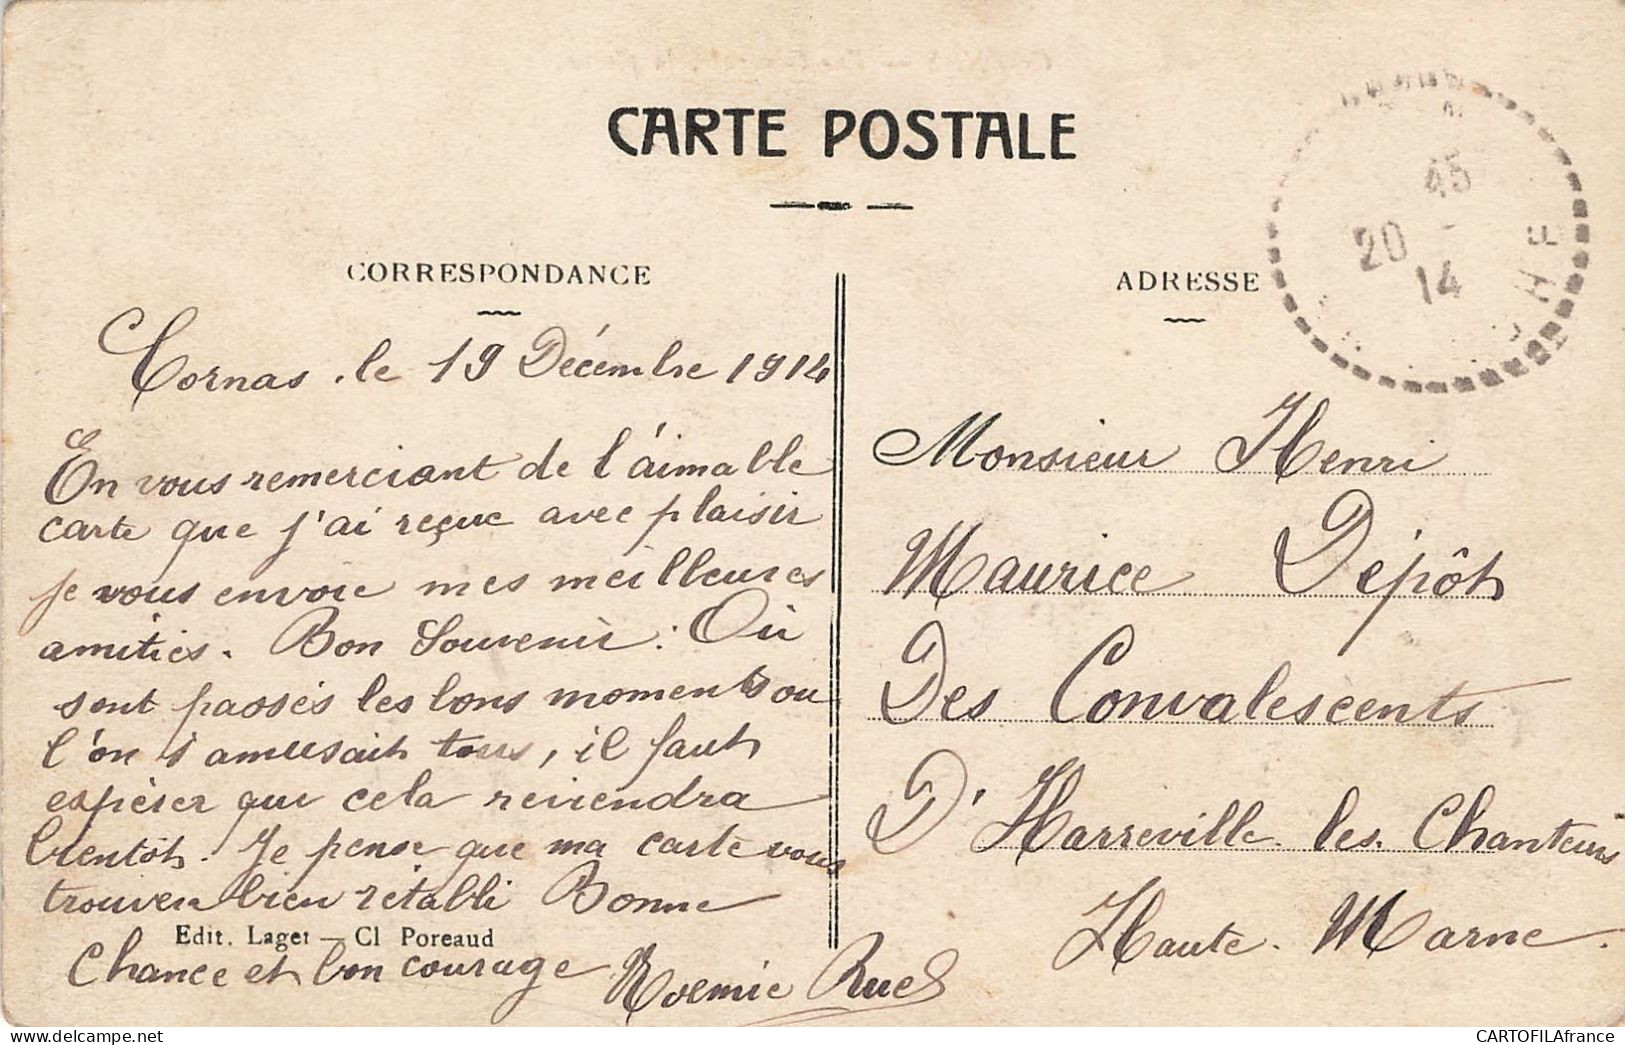 CARTE POSTALE
CORRESPONDANCE
Cornas .le 19 Décembre 1914
En vous remerciant de l'aimable
carte que j'ai reçue avec plaisir
je vous envoie mes meilleures
amitiés. Bon Souvenir. Où
sont passés les bons moments ou
l'on s'amusait tous, il faut
espérer que cela reviendra
bientôt. Je pense que ma carte vous
trouvera bien rétabli Bonne
Edit. Laget — Cl Poreaud
Chance et bon courage Noémie
ADRESSE
45
20
14
CHE
Monsieur Henri
Maurice Dépôt
Des Convalescents
D'Harreville les Chanteurs
Haute. Marne.
CARTOFILAfrance